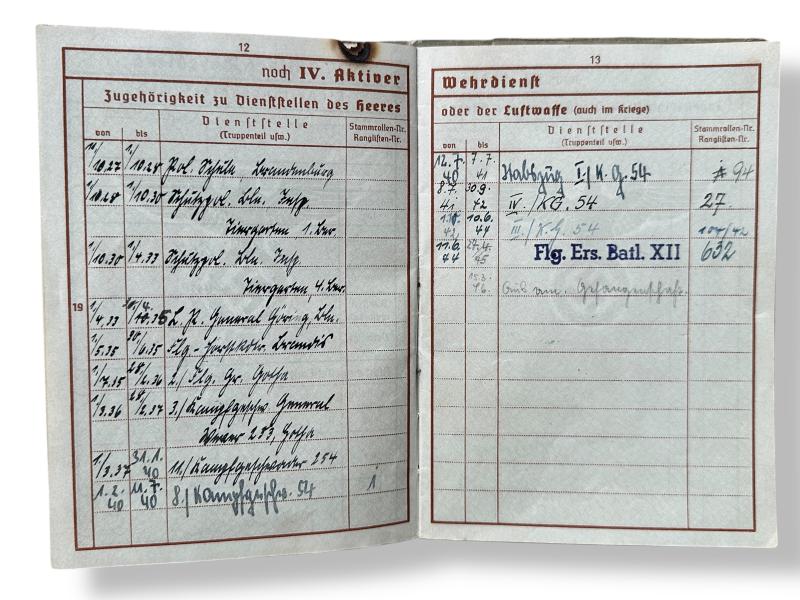 12
noch IV. Aktiver
Zugehörigkeit zu Dienststellen des Heeres
von bis Dienststelle (Truppenteil usw.) Stammrollen-Nr. Ranglisten-Nr.
1/10.28 Pol. Schule Brandenburg
1/10.28 1/10.30 Schutzpol. Bln. Insp.
Tiergarten 1. Ber.
1/10.30 1/4.33 Schutzpol. Bln. Insp.
Tiergarten, 4. Ber.
19
1/4.33 L. P. General Göring, Bln.
1/5.35 30/6.35 Flg.-Horstkdtr. Brandis
1/7.35 28/2.36 2./ Flg. Gr. Gotha
1/3.36 28/2.37 3./ Kampfgeschw. General
Wever 253, Gotha
1/3.37 31.1.40 11./ Kampfgeschwader 254
1.2.40 11.7.40 8./ Kampfgeschw. 54 1
13
Wehrdienst
oder der Luftwaffe (auch im Kriege)
von bis Dienststelle (Truppenteil usw.) Stammrollen-Nr. Ranglisten-Nr.
12.7.40 7.7.41 Stabszug I/ K.G. 54 94
8.7.41 30.9.42 IV./ KG. 54 27.
1.10.42 10.6.44 III./ K.G. 54 104/42
11.6.44 Flg. Ers. Batl. XII 632
Gefangenschaft.